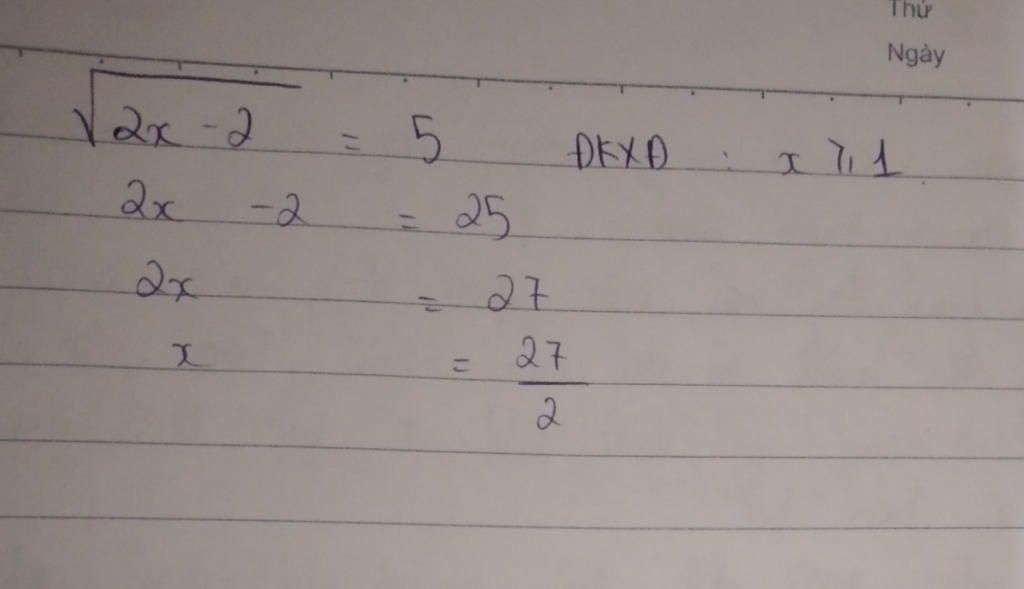 Thứ
Ngày
√(2x - 2) = 5 ĐKXĐ : x ⩾ 1
2x - 2 = 25
2x = 27
x = 27/2